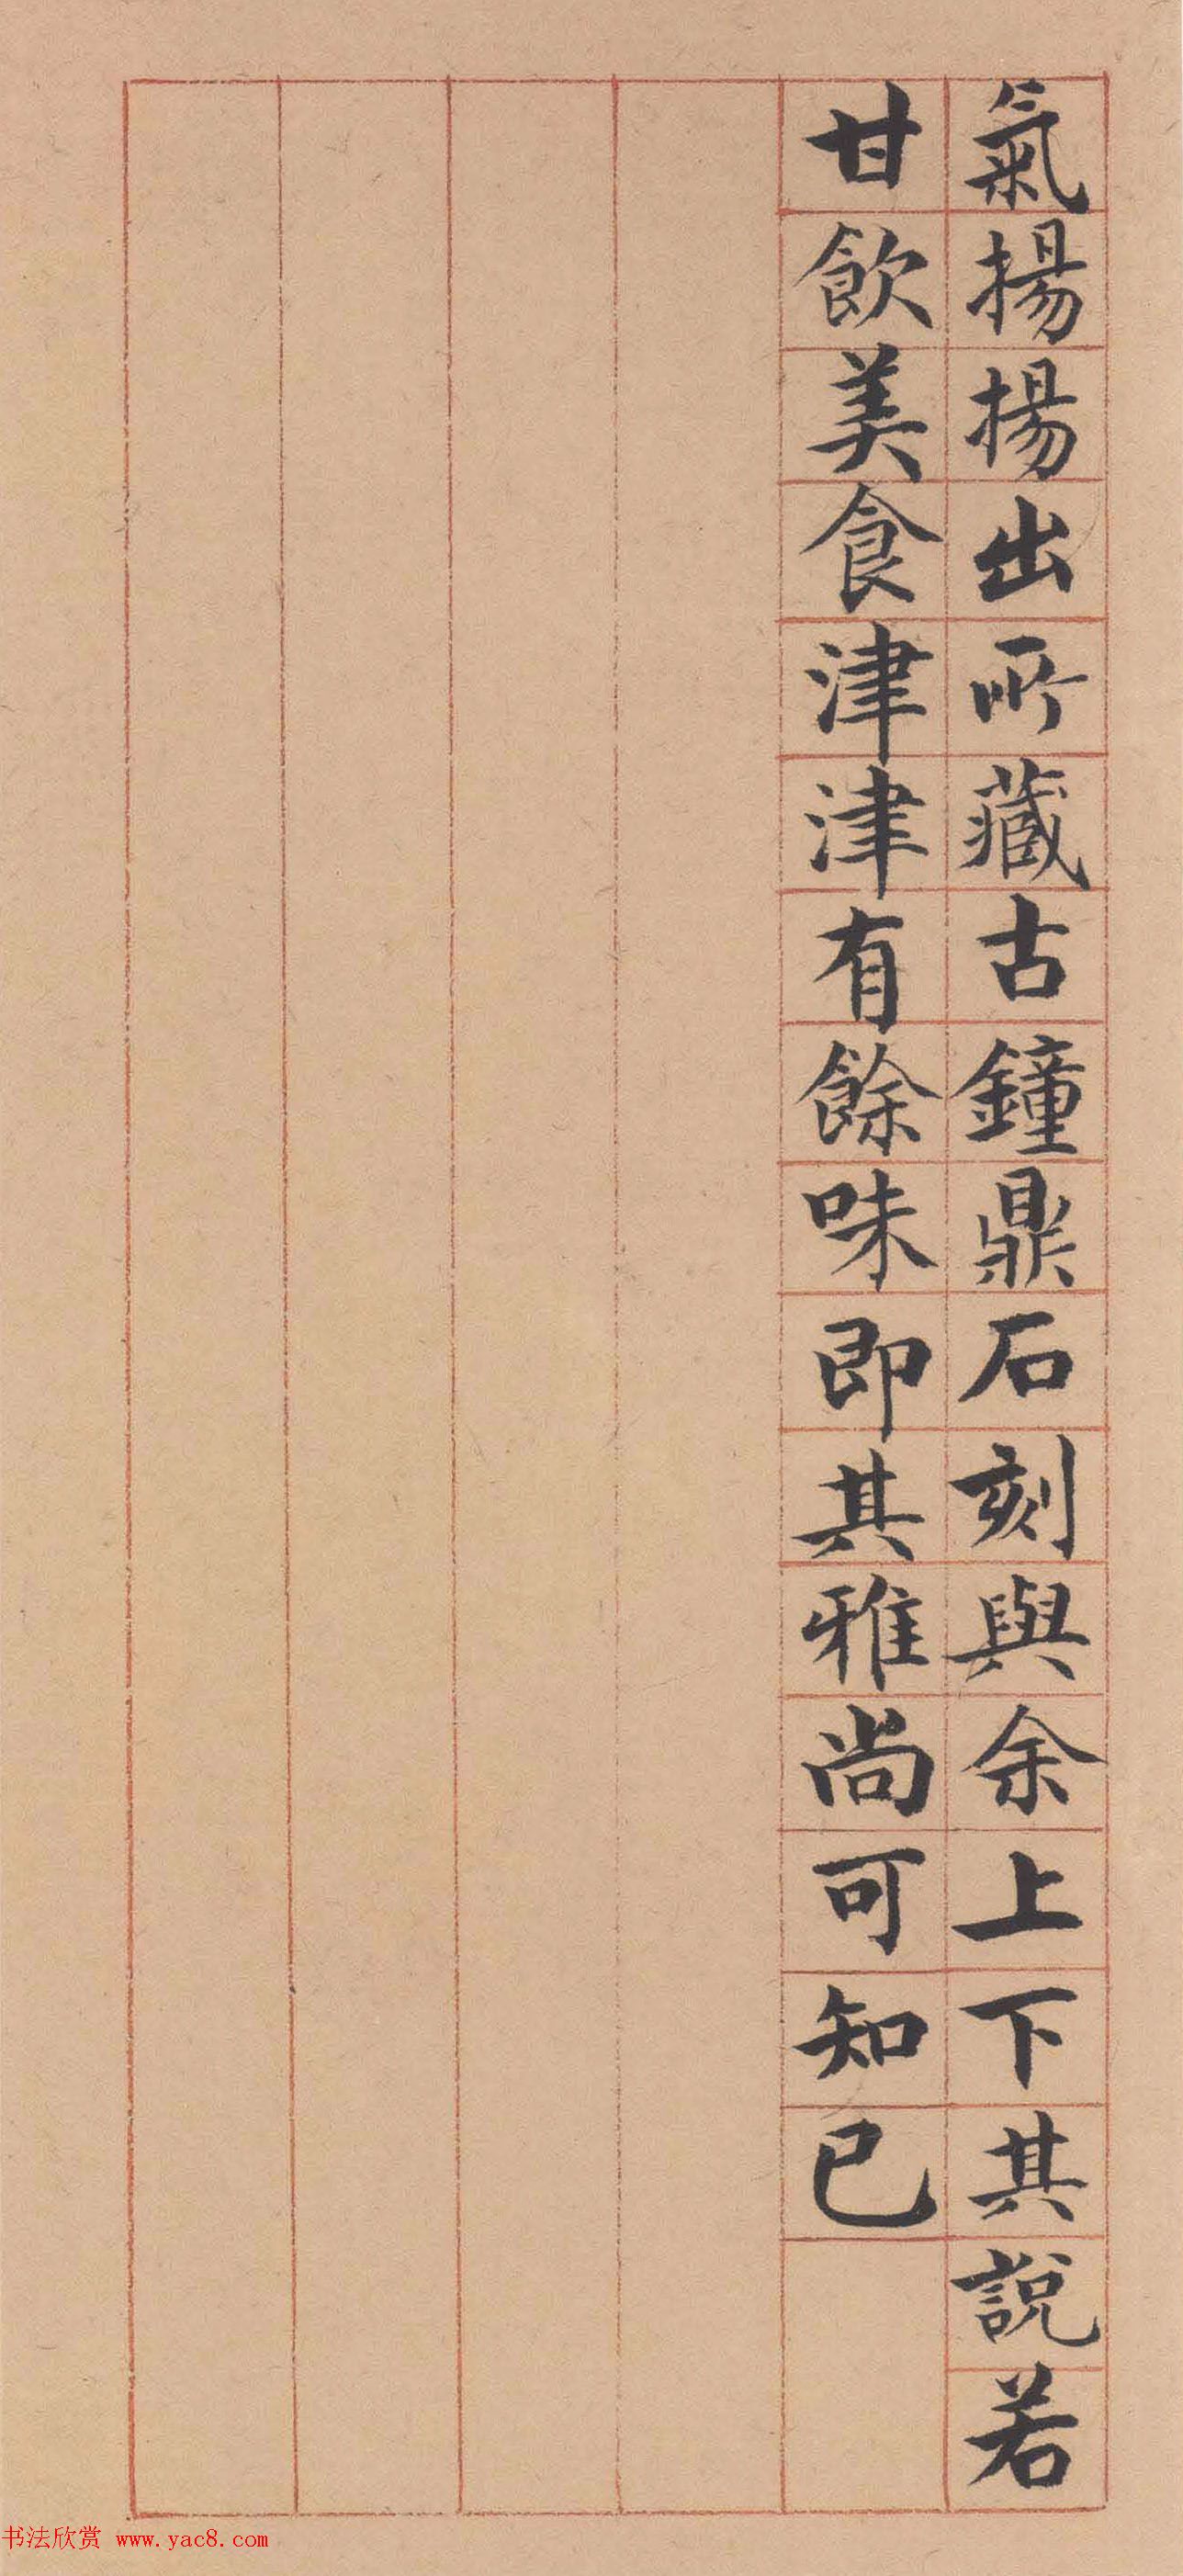 氣揚揚出所藏古鐘鼎石刻與余上下其說若
甘飲美食津津有餘味即其雅尚可知已
书法欣赏 www.yac8.com